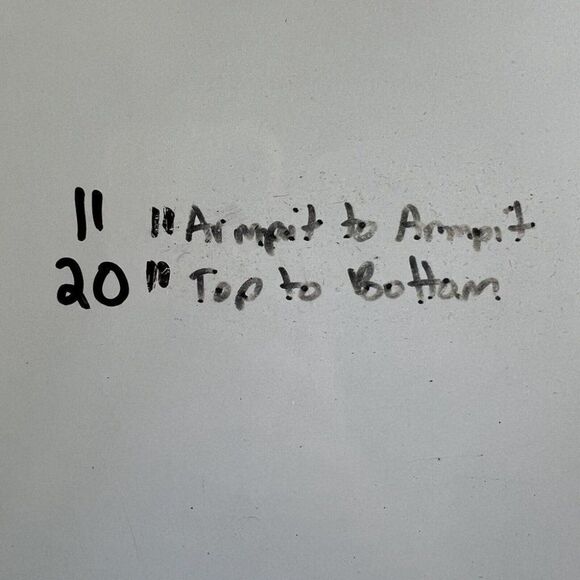 11 "Armpit to Armpit
20 " Top to Bottom